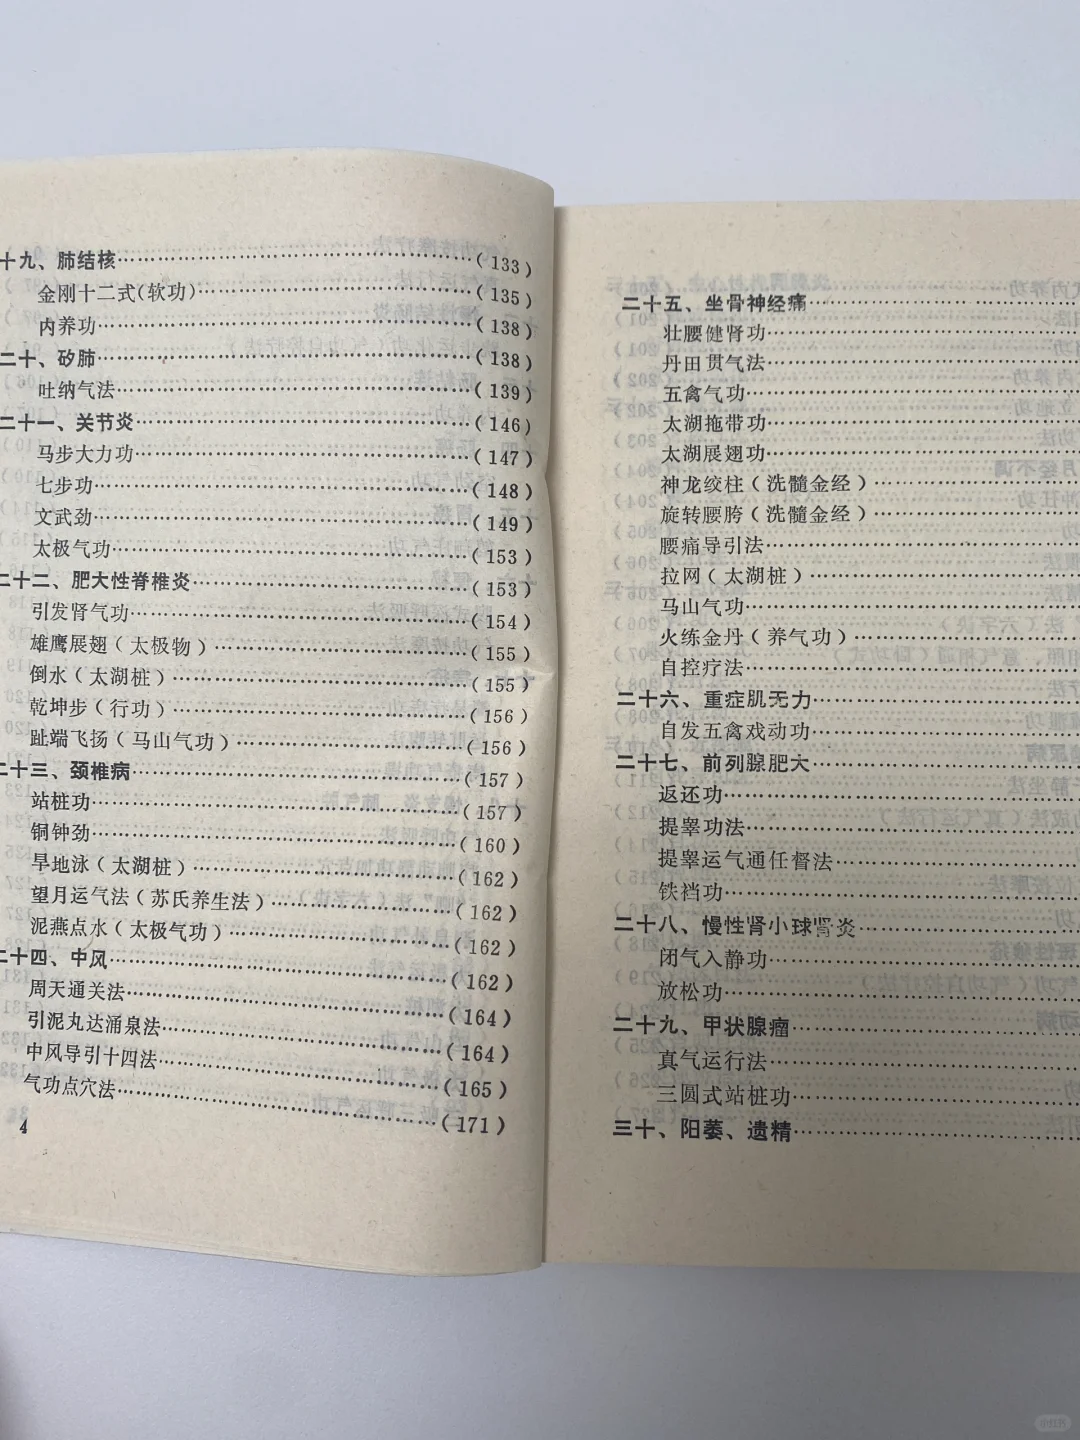 十九、肺结核……………………………………(133)
金刚十二式(软功)……………………………(135)
内养功…………………………………………(138)
二十、矽肺………………………………………(138)
吐纳气法………………………………………(139)
二十一、关节炎…………………………………(146)
马步大力功……………………………………(147)
七步功…………………………………………(148)
文武劲…………………………………………(149)
太极气功………………………………………(153)
二十二、肥大性脊椎炎…………………………(153)
引发肾气功……………………………………(154)
雄鹰展翅(太极物)……………………………(155)
倒水(太湖桩)…………………………………(155)
乾坤步(行功)…………………………………(156)
趾端飞扬(马山气功)…………………………(156)
二十三、颈椎病…………………………………(157)
站桩功…………………………………………(157)
铜钟劲…………………………………………(160)
旱地泳(太湖桩)………………………………(162)
望月运气法(苏氏养生法)……………………(162)
泥燕点水(太极气功)…………………………(162)
二十四、中风……………………………………(162)
周天通关法……………………………………(164)
引泥丸达涌泉法………………………………(164)
中风导引十四法………………………………(165)
气功点穴法……………………………………(171)
4
二十五、坐骨神经痛……………………………
壮腰健肾功……………………………………
丹田贯气法……………………………………
五禽气功………………………………………
太湖拖带功……………………………………
太湖展翅功……………………………………
神龙绞柱(洗髓金经)…………………………
旋转腰胯(洗髓金经)…………………………
腰痛导引法……………………………………
拉网(太湖桩)…………………………………
马山气功………………………………………
火练金丹(养气功)……………………………
自控疗法………………………………………
二十六、重症肌无力……………………………
自发五禽戏动功………………………………
二十七、前列腺肥大……………………………
返还功…………………………………………
提睾功法………………………………………
提睾运气通任督法……………………………
铁裆功…………………………………………
二十八、慢性肾小球肾炎………………………
闭气入静功……………………………………
放松功…………………………………………
二十九、甲状腺瘤………………………………
真气运行法……………………………………
三圆式站桩功…………………………………
三十、阳萎、遗精………………………………
小红书